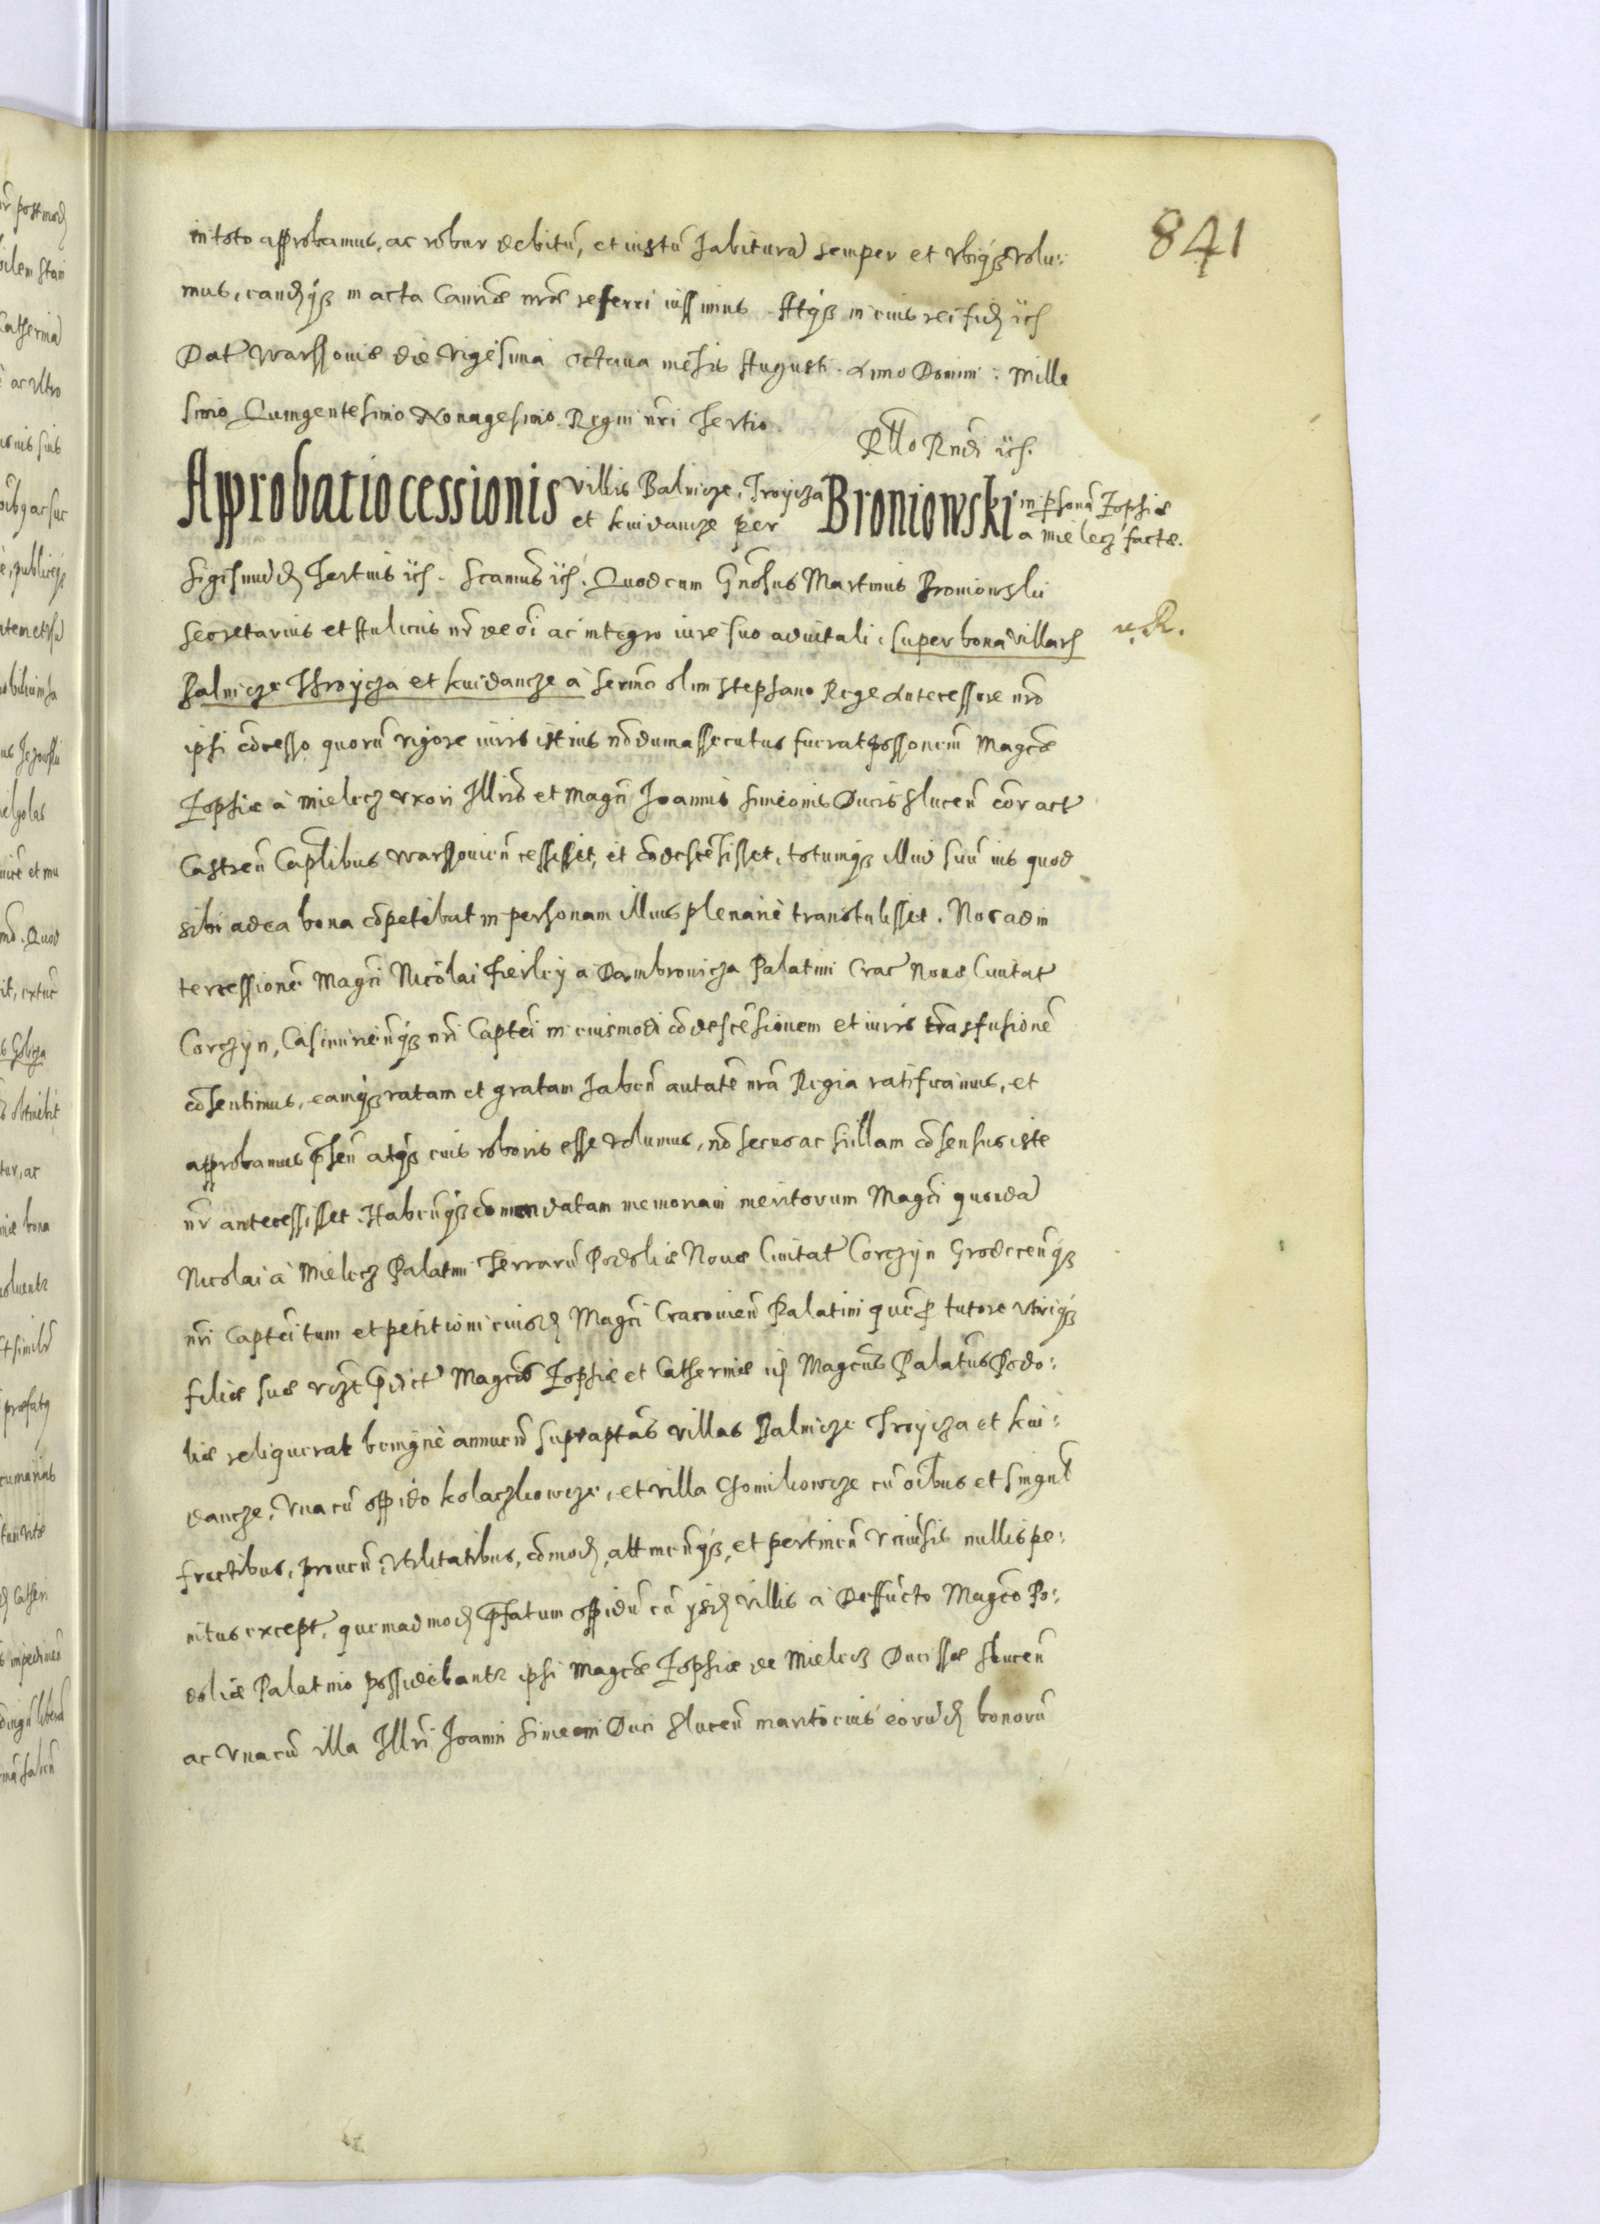 841
in toto approbamus, ac robur debitũ, et iustũ habiturã semper et vbiq́ȝ volu:
mus, eandẽq́ȝ in acta Cancriæ nr̃æ referri iussimus. Atq́ȝ in cuius rei fidẽ ꝛc
Dat̃ Warssouiæ die vigesima octaua mẽsis Augusti. Anno Domini: Mille
simo Quingentesimo Nonagesimo Regni nr̃i Tertio.
Rllo Rndi ꝛc.
Approbatio cessionis villis Balnicze, Troycza et Kuidancze per Broniowski in p̱sonã Zophiæ a Mielecz factæ.
Sigismundꝰ Tertius ꝛc. Scamus ꝛc. Quod cum Gn̄osus Martinus Broniowski
Secretarius et Aulicus nr̃ de oĩ ac integro iure suo aduitali, super bona villarũ
Balnicze Throycza et Kuidancze à Serm̃o olim Stephano Rege Antecessore nr̃o
ipsi cõcesso, quorũ vigore iuris istius nõdum assecutus fuerat possonem̃ Magcæ
Zophiæ à Mielecz vxori Illr̃is et Magci Joannis Simeonis Ducis Slucen̄ corã act̃
Castren̄ Captl̃ibus Warssouien̄ cessisset, et cõdescẽsisset, totumq́ȝ illud suũ ius quod
sibi ad ea bona cõpetebat in personam illius plenariè transtulisset. Nos ad in
tercessionẽ Magci Nicolai Fierley à Dambrouicza Palatini Crac̃ Nouæ Ciuitat̃
Corczyn, Casimirien̄q́ȝ nr̃i Captei in eiusmodi cõdescẽsionem et iuris trãsfusionẽ
cõsentimus, eamq́ȝ ratam et gratam haben̄ autatẽ nr̃a Regia ratificamus, et
approbamus p̃sen̄ atq́ȝ eius roboris esse volumus, nõ secus ac si illam cõsensus iste
nr̃ antecessisset. Haben̄q́ȝ comendatam memoriam meritorum Magci quondã
Nicolai à Mielecz Palatini Terrarũ Podoliæ Nouæ Ciuitat̃ Corczyn Grodecen̄q́ȝ
nr̃i Captei tum et petitioni eiusdẽ Magci Cracouien̄ Palatini quẽ p̱ tutore vtriq́ȝ
filiæ suæ vizt p̃dict̃ Magcis Zophiæ et Catherinæ iẽ Magcus Palatus Podo:
liæ reliquerat benignè annuen̄ supraptas villas Balnicze Troycza et Kui:
dancze, vna cũ oppido Kolaczkowcze, et villa Chomikowcze cũ oĩbus et singul̃
fructibus, prouen̄, vtilitatibus, cõmodꝭ, attinen̄q́ȝ, et pertinen̄ vniuẽsis nullis pe:
nitus except̃, quemadmodũ p̃fatum oppidũ cũ ysdẽ villis à Deffũcto Magco Po:
doliæ Palatino possidebantr ipsi Magcæ Zophiæ de Mielecz Ducissæ Slucen̄
ac vna cũ illa Illri Joanni Simeoni Duci Slucen̄ marito eius eorũdẽ bonorũ